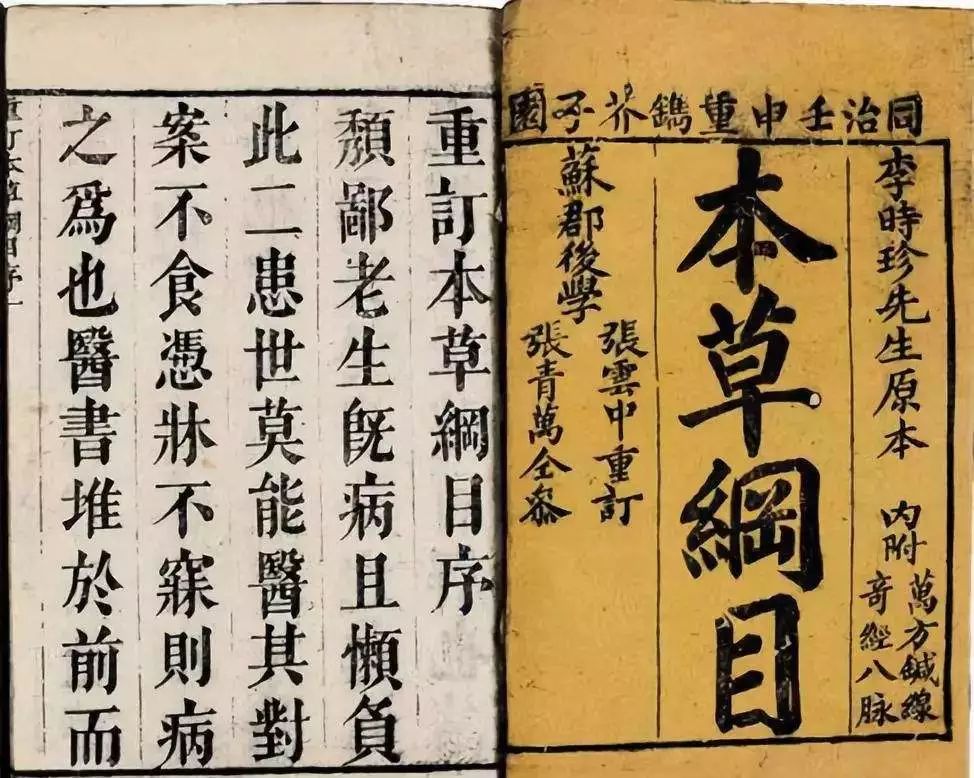 同治壬申重鐫芥子園
李時珍先生原本 內附 萬方鍼線
奇經八脉
本草綱目
蘇郡後學
張雲中重訂
張青萬仝叅
重訂本草綱目序
頽鄙老生旣病且懶負
此二患世莫能醫其對
案不食憑牀不寐則病
之爲也醫書堆於前而